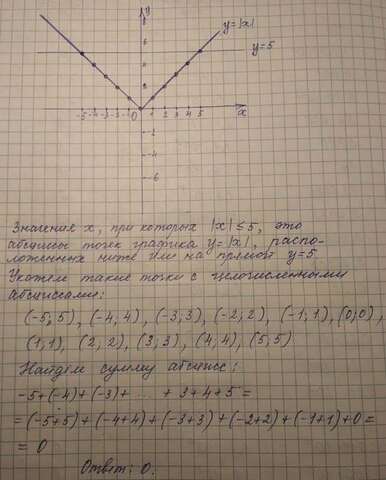 y
y=|x|
y=5
8
6
4
2
-5 -4 -3 -2 -1 0 1 2 3 4 5 x
-2
-4
-6
Значения x, при которых |x| ≤ 5, это
абсциссы точек графика y=|x|, распо-
ложенных ниже или на прямой y=5.
Укажем такие точки с целочисленными
абсциссами:
(-5;5), (-4,4), (-3;3), (-2;2), (-1;1), (0;0),
(1;1), (2;2), (3;3), (4;4), (5;5)
Найдём сумму абсцисс:
-5+(-4)+(-3)+ ... + 3+4+5=
=(-5+5)+(-4+4)+(-3+3)+(-2+2)+(-1+1)+0=
= 0
Ответ: 0.